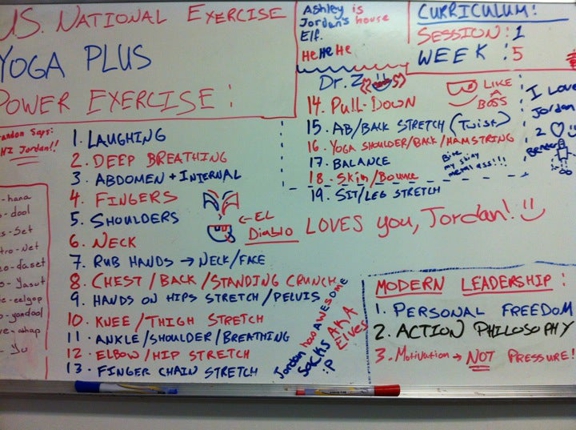 US. NATIONAL EXERCISE
YOGA PLUS
POWER EXERCISE:
Ashley is
Jordan's house
Elf.
HeHeHe
CURRICULUM:
SESSION: 1
WEEK: 5
Says:
HI Jordan!!
1. LAUGHING
2. DEEP BREATHING
3. ABDOMEN + INTERNAL
4. FINGERS
5. SHOULDERS
6. NECK
7. RUB HANDS → NECK/FACE
8. CHEST/BACK/STANDING CRUNCH
9. HANDS ON HIPS STRETCH/PELVIS
10. KNEE/THIGH STRETCH
11. ANKLE/SHOULDER/BREATHING
12. ELBOW/HIP STRETCH
13. FINGER CHAIN STRETCH
← EL
Diablo
Dr. Z
14. Pull-Down
15. AB/BACK STRETCH (Twist)
16. YOGA SHOULDER/BACK/HAMSTRING
17. BALANCE
18. Skin/Bounce
19. SIT/LEG STRETCH
LIKE
A
BOSS
I Love
Jordan
2 ♡
Bender
Bite
my shiny
metal ass!!!
LOVES you, Jordan! :)
Jordan has AWESOME
Socks A.K.A
Elves
:P
MODERN LEADERSHIP:
1. PERSONAL FREEDOM
2. ACTION PHILOSOPHY
3. Motivation → NOT PRESSURE!
-hana
-dool
-Set
-Net
-daset
-yasut
-eelgop
-yodool
-ahop
-Yul